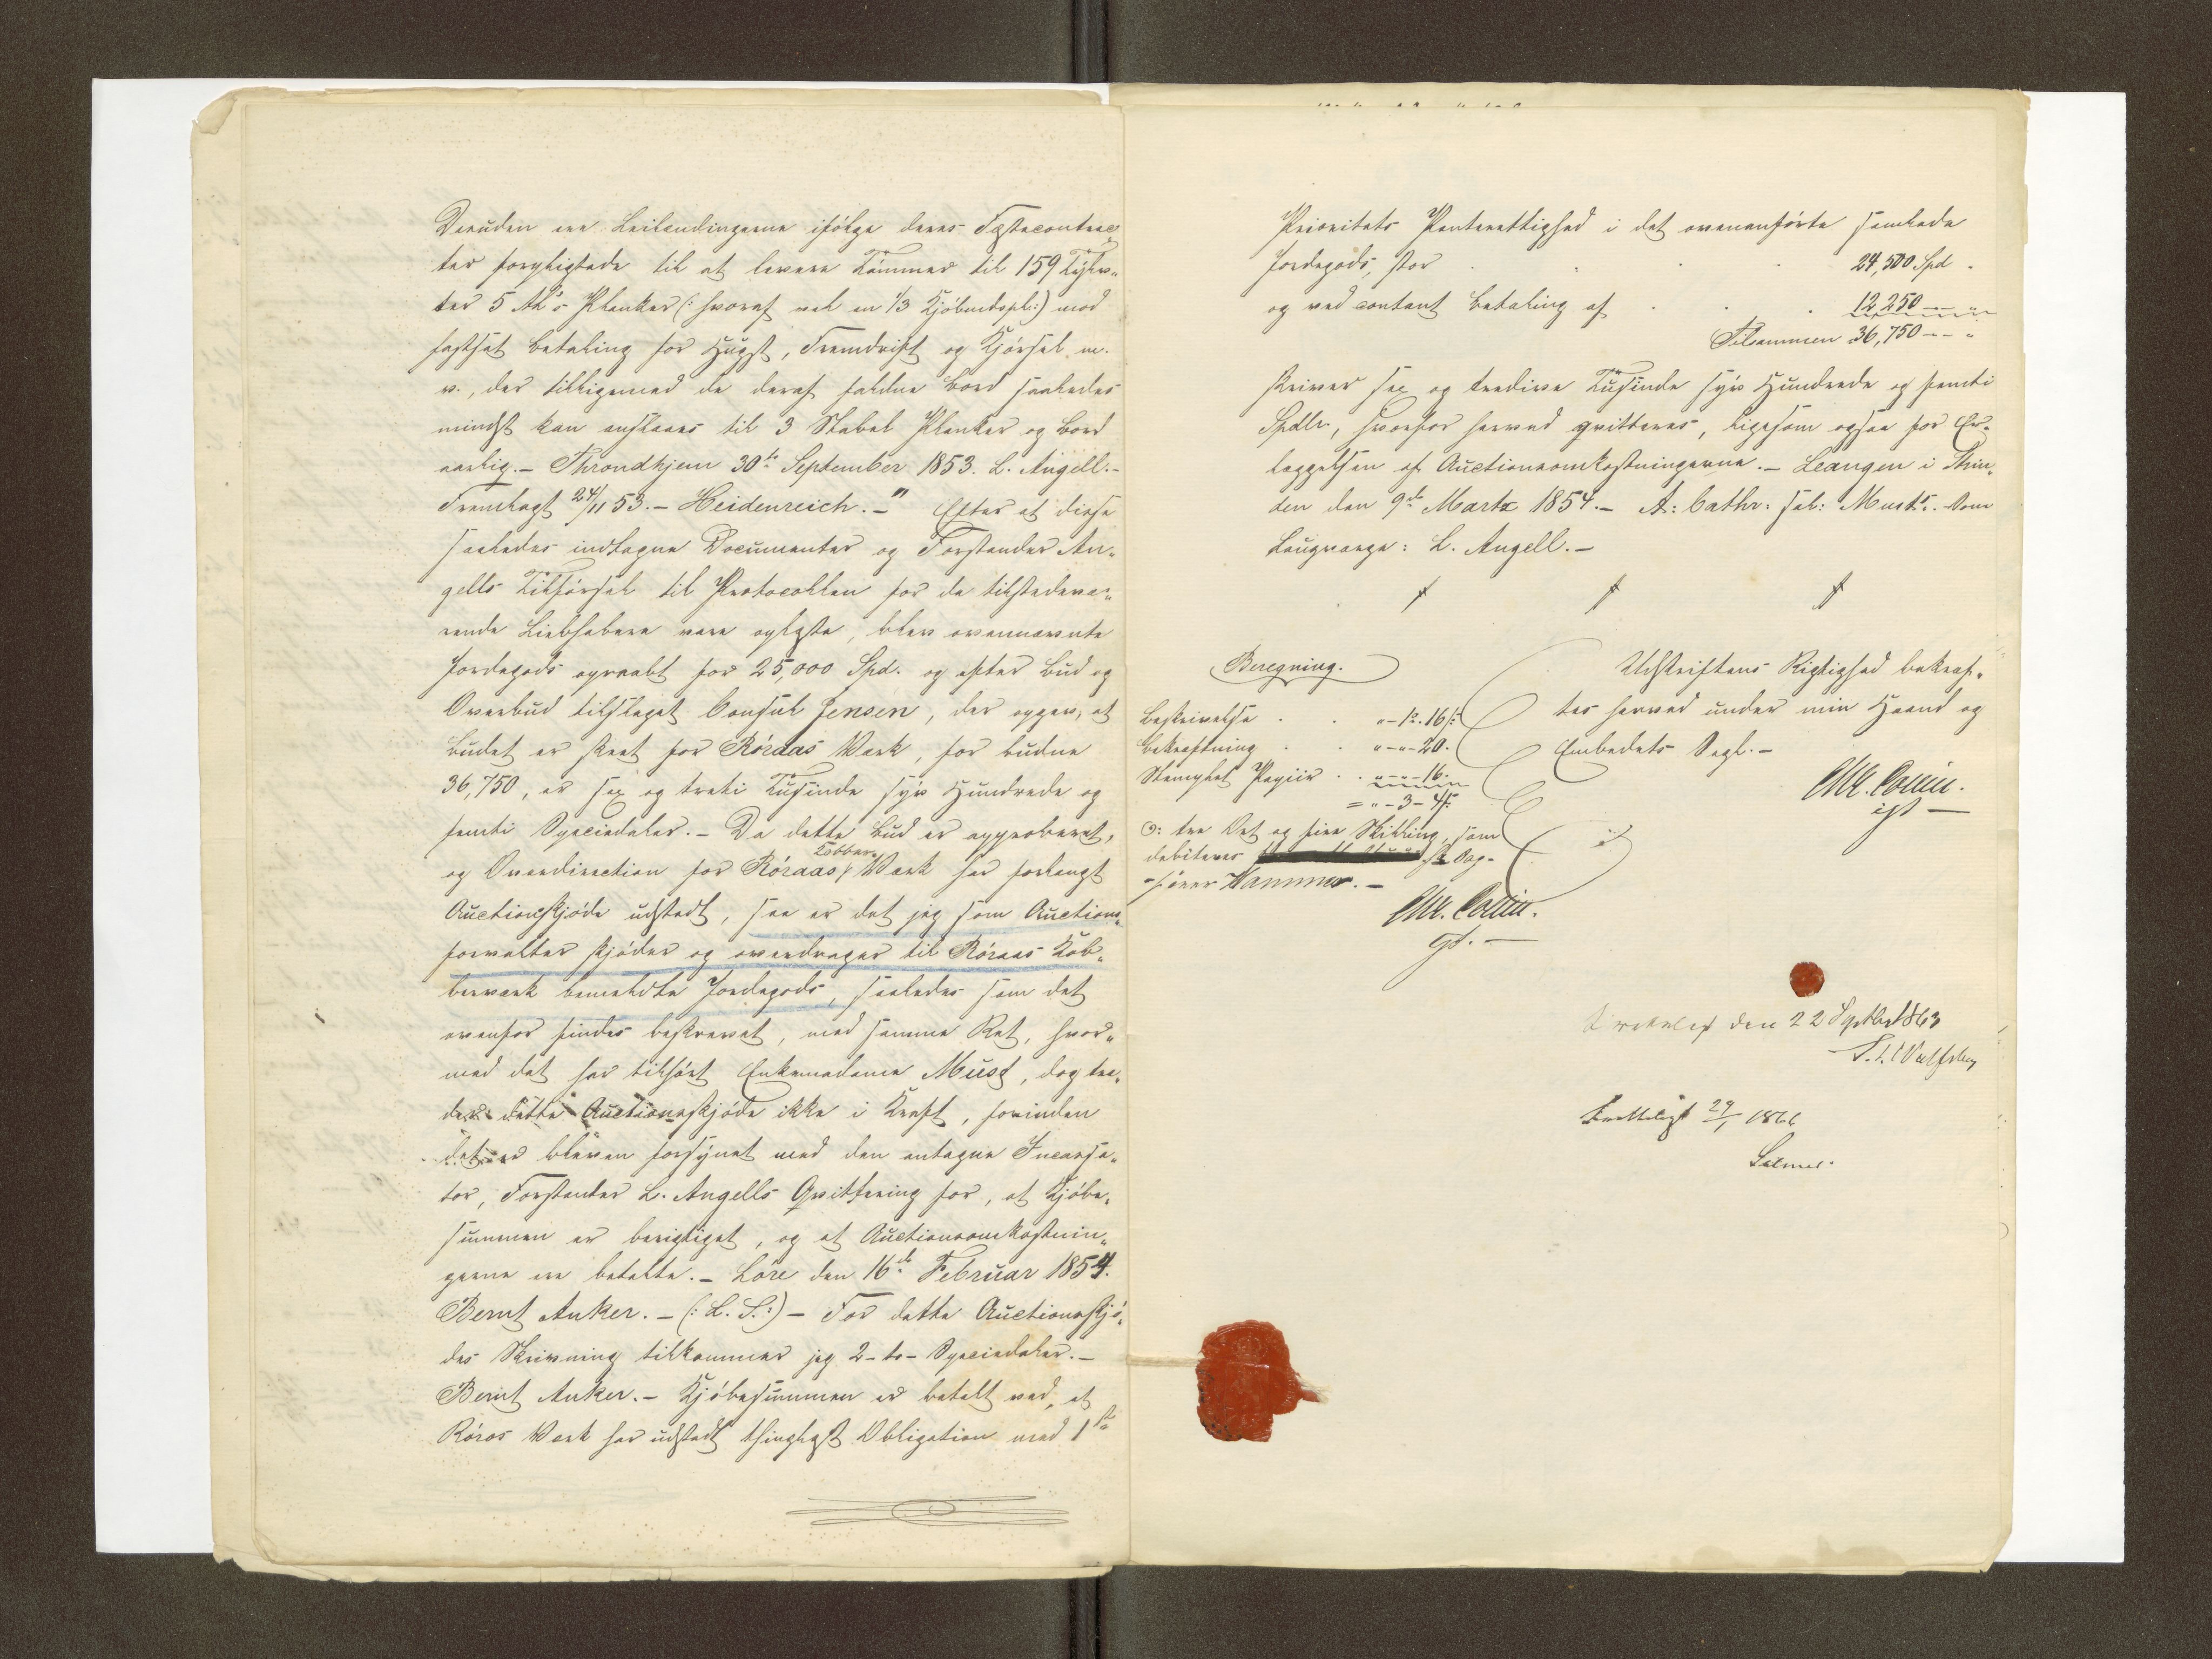 Desuden ere Leilendingerne ifölge deres Fæstecontrac
ter forpligtede til at levere Tømmer til 159 Tylv„
ter 5 Al's Planker (: hvoraf vel en 1/3 Kjöbmdspl:) mod
fastsat Betaling for Hugst, Fremdrift og Kjörsel m.
v., der tilligemed de deraf faldne Bord saaledes
mindst kan anslaaes til 3 Stabel Planker og Bord
aarlig. – Throndhjem 30te September 1853. L. Angell. –
Fremlagt 24/11 53. – Heidenreich. –" Efter at disse
saaledes indtagne Documenter og Forstander An„
gells Tilförsel til Protocollen for de tilstedevæ„
rende Liebhabere vare oplæste, blev ovennævnte
Jordegods opraabt for 25,000 Spd. og efter Bud og
Overbud tilslaget Consul Jensen, der opgav, at
Budet er skeet for Röraas Værk, for budne
36,750, er sex og treti Tusinde syv Hundrede og
femti Speciedaler. – Da dette Bud er approberet,
og Overdirection for Röraas Kobber Værk har forlangt
Auctionsskjöde udstedt, saa er det jeg som Auctions„
forvalter skjöder og overdrager til Röraas Kob„
berværk bemeldte Jordegods, saaledes som det
ovenfor findes beskrevet, med samme Ret, hvor„
med det har tilhört Enkemadame Must, dog træ„
der dette Auctionsskjöde ikke i Kraft, forinden
det er bleven forsynet med den antagne Incassa„
tor, Forstander L. Angells Qvittering for, at Kjöbe„
summen er berigtiget, og at Auctionsomkostnin„
gerne ere betalte. – Lore den 16de Februar 1854.
Bernt Anker. – (: L. S. :) – For dette Auctionsskjö„
des Skrivning tilkommer jeg 2 – to – Speciedaler. –
Bernt Anker. – Kjöbesummen er betalt ved, at
Röros Værk har udstedt thinglyst Obligation med 1ste
Prioritets Panterettighed i det ovenanförte samlede
Jordegods, stor . . . 24,500 Spd.
og ved contant Betaling af . . 12,250 – „
Tilsammen 36,750 – „
skriver sex og tredive Tusinde syv Hundrede og femti
Spdlr., hvorfor herved qvitteres, ligesom ogsaa for Er„
læggelsen af Auctionsomkostningerne. – Leangen i Strin„
den den 9de Marts 1854. – A: Cathr: sal: Must's. – Som
Laugværge: L. Angell. –
Beregning.
Beskrivelse . . „ – 1 . 16 s:
Bekræftning . . „ – „ – 20.
Stemplet Papiir . . „ – „ – 16.
= „ – 3 – 4 s:
ↄ: tre Ort og fire Skilling, som
debiteres Sag-
förer Hammer. –
Chr. Collin.
gt. –
Udskriftens Rigtighed bekræf„
tes herved under min Haand og
Embedets Segl. –
Chr. Collin.
gt –
den 22 Septbr 1863
Fremlagt 29/1 1866